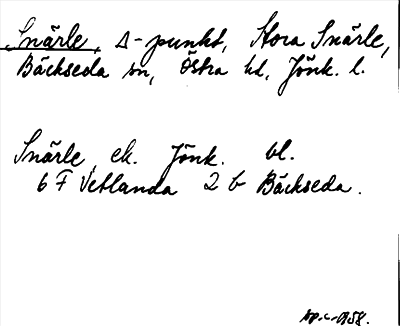 Snärle, Δ-punkt, Stora Snärle,
Bäckseda sn, Östra hd, Jönk. l.
Snärle, ek. Jönk. bl.
6 F Vetlanda 2 b Bäckseda.